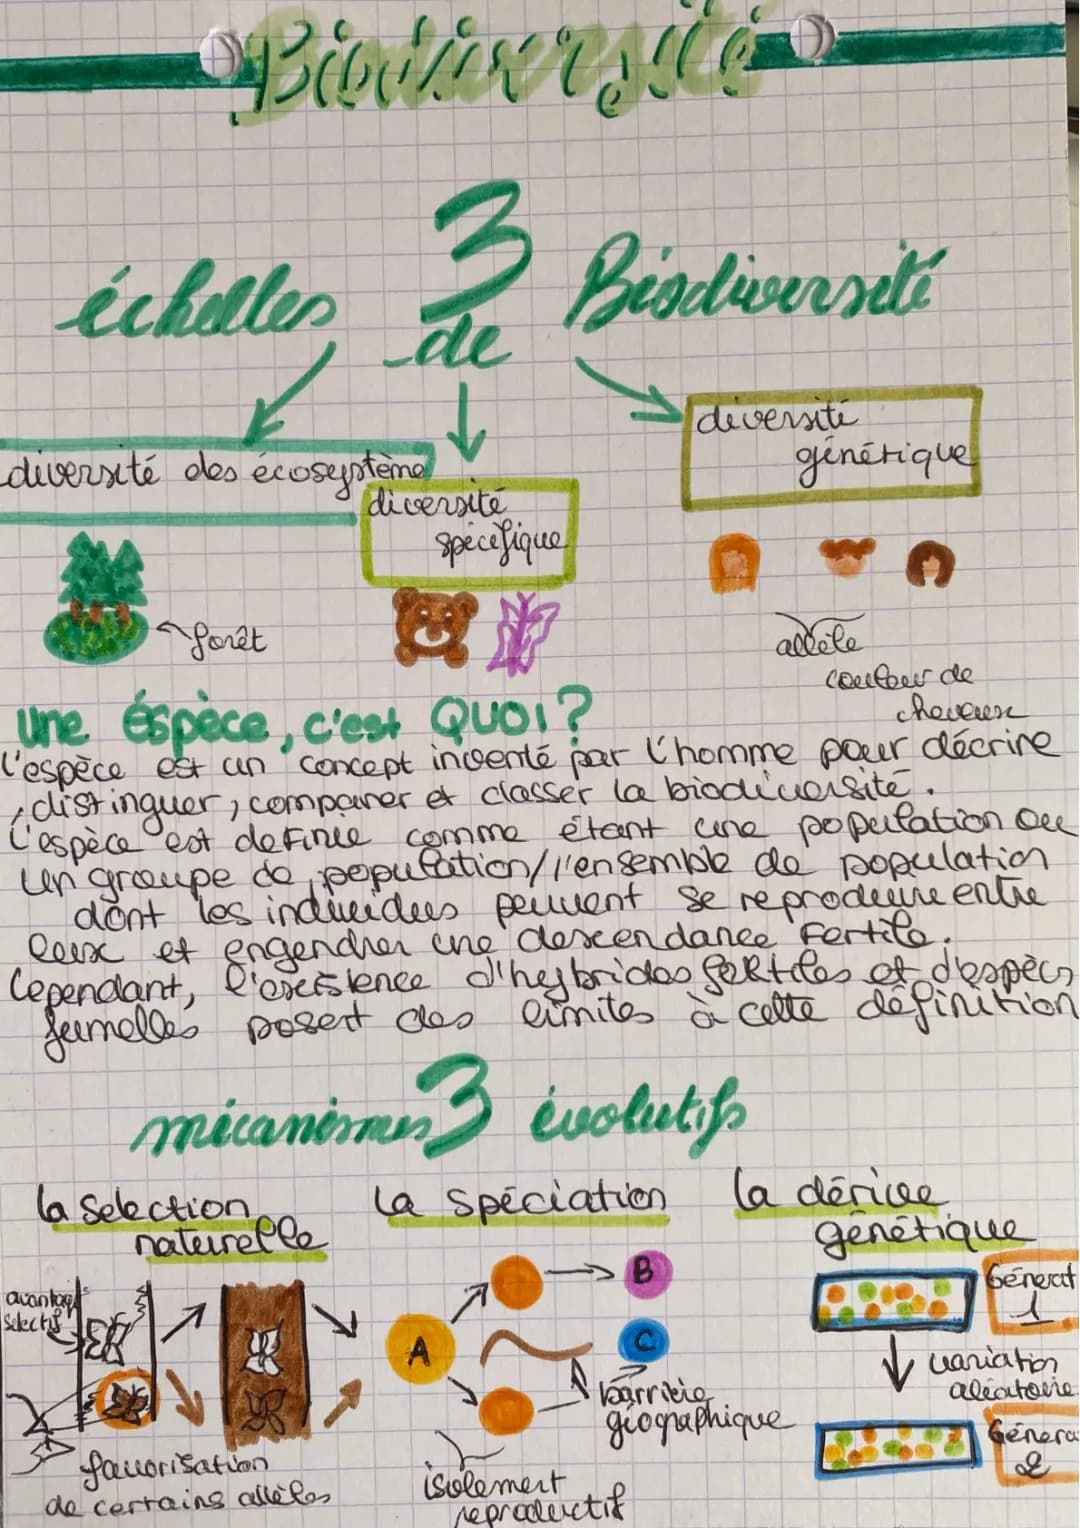 Biodiversité
3
échelles de Biodiversité
diversité des écosystème
diversité
spécifique
diversité
génétique
forêt
allèle
couleur de
cheveux
Une éspèce, c'est QUOI ?
L'espèce est un concept inventé par l'homme pour décrire
, distinguer, comparer et classer la biodiversité.
L'espèce est définie comme étant une population ou
un groupe de population/l'ensemble de population
dont les individus peuvent se reproduire entre
eux et engendrer une descendance fertile.
Cependant, l'existence d'hybrides fertiles et d'espèces
jumelles posent des limites à cette définition
3
mécanismes évolutifs
la selection
naturelle
avantage
selectif
favorisation
de certains allèles
La spéciation
A
B
C
barrière
géographique
isolement
reproductif
la dérive
génétique
Générat
1
variation
aléatoire
Généra
2